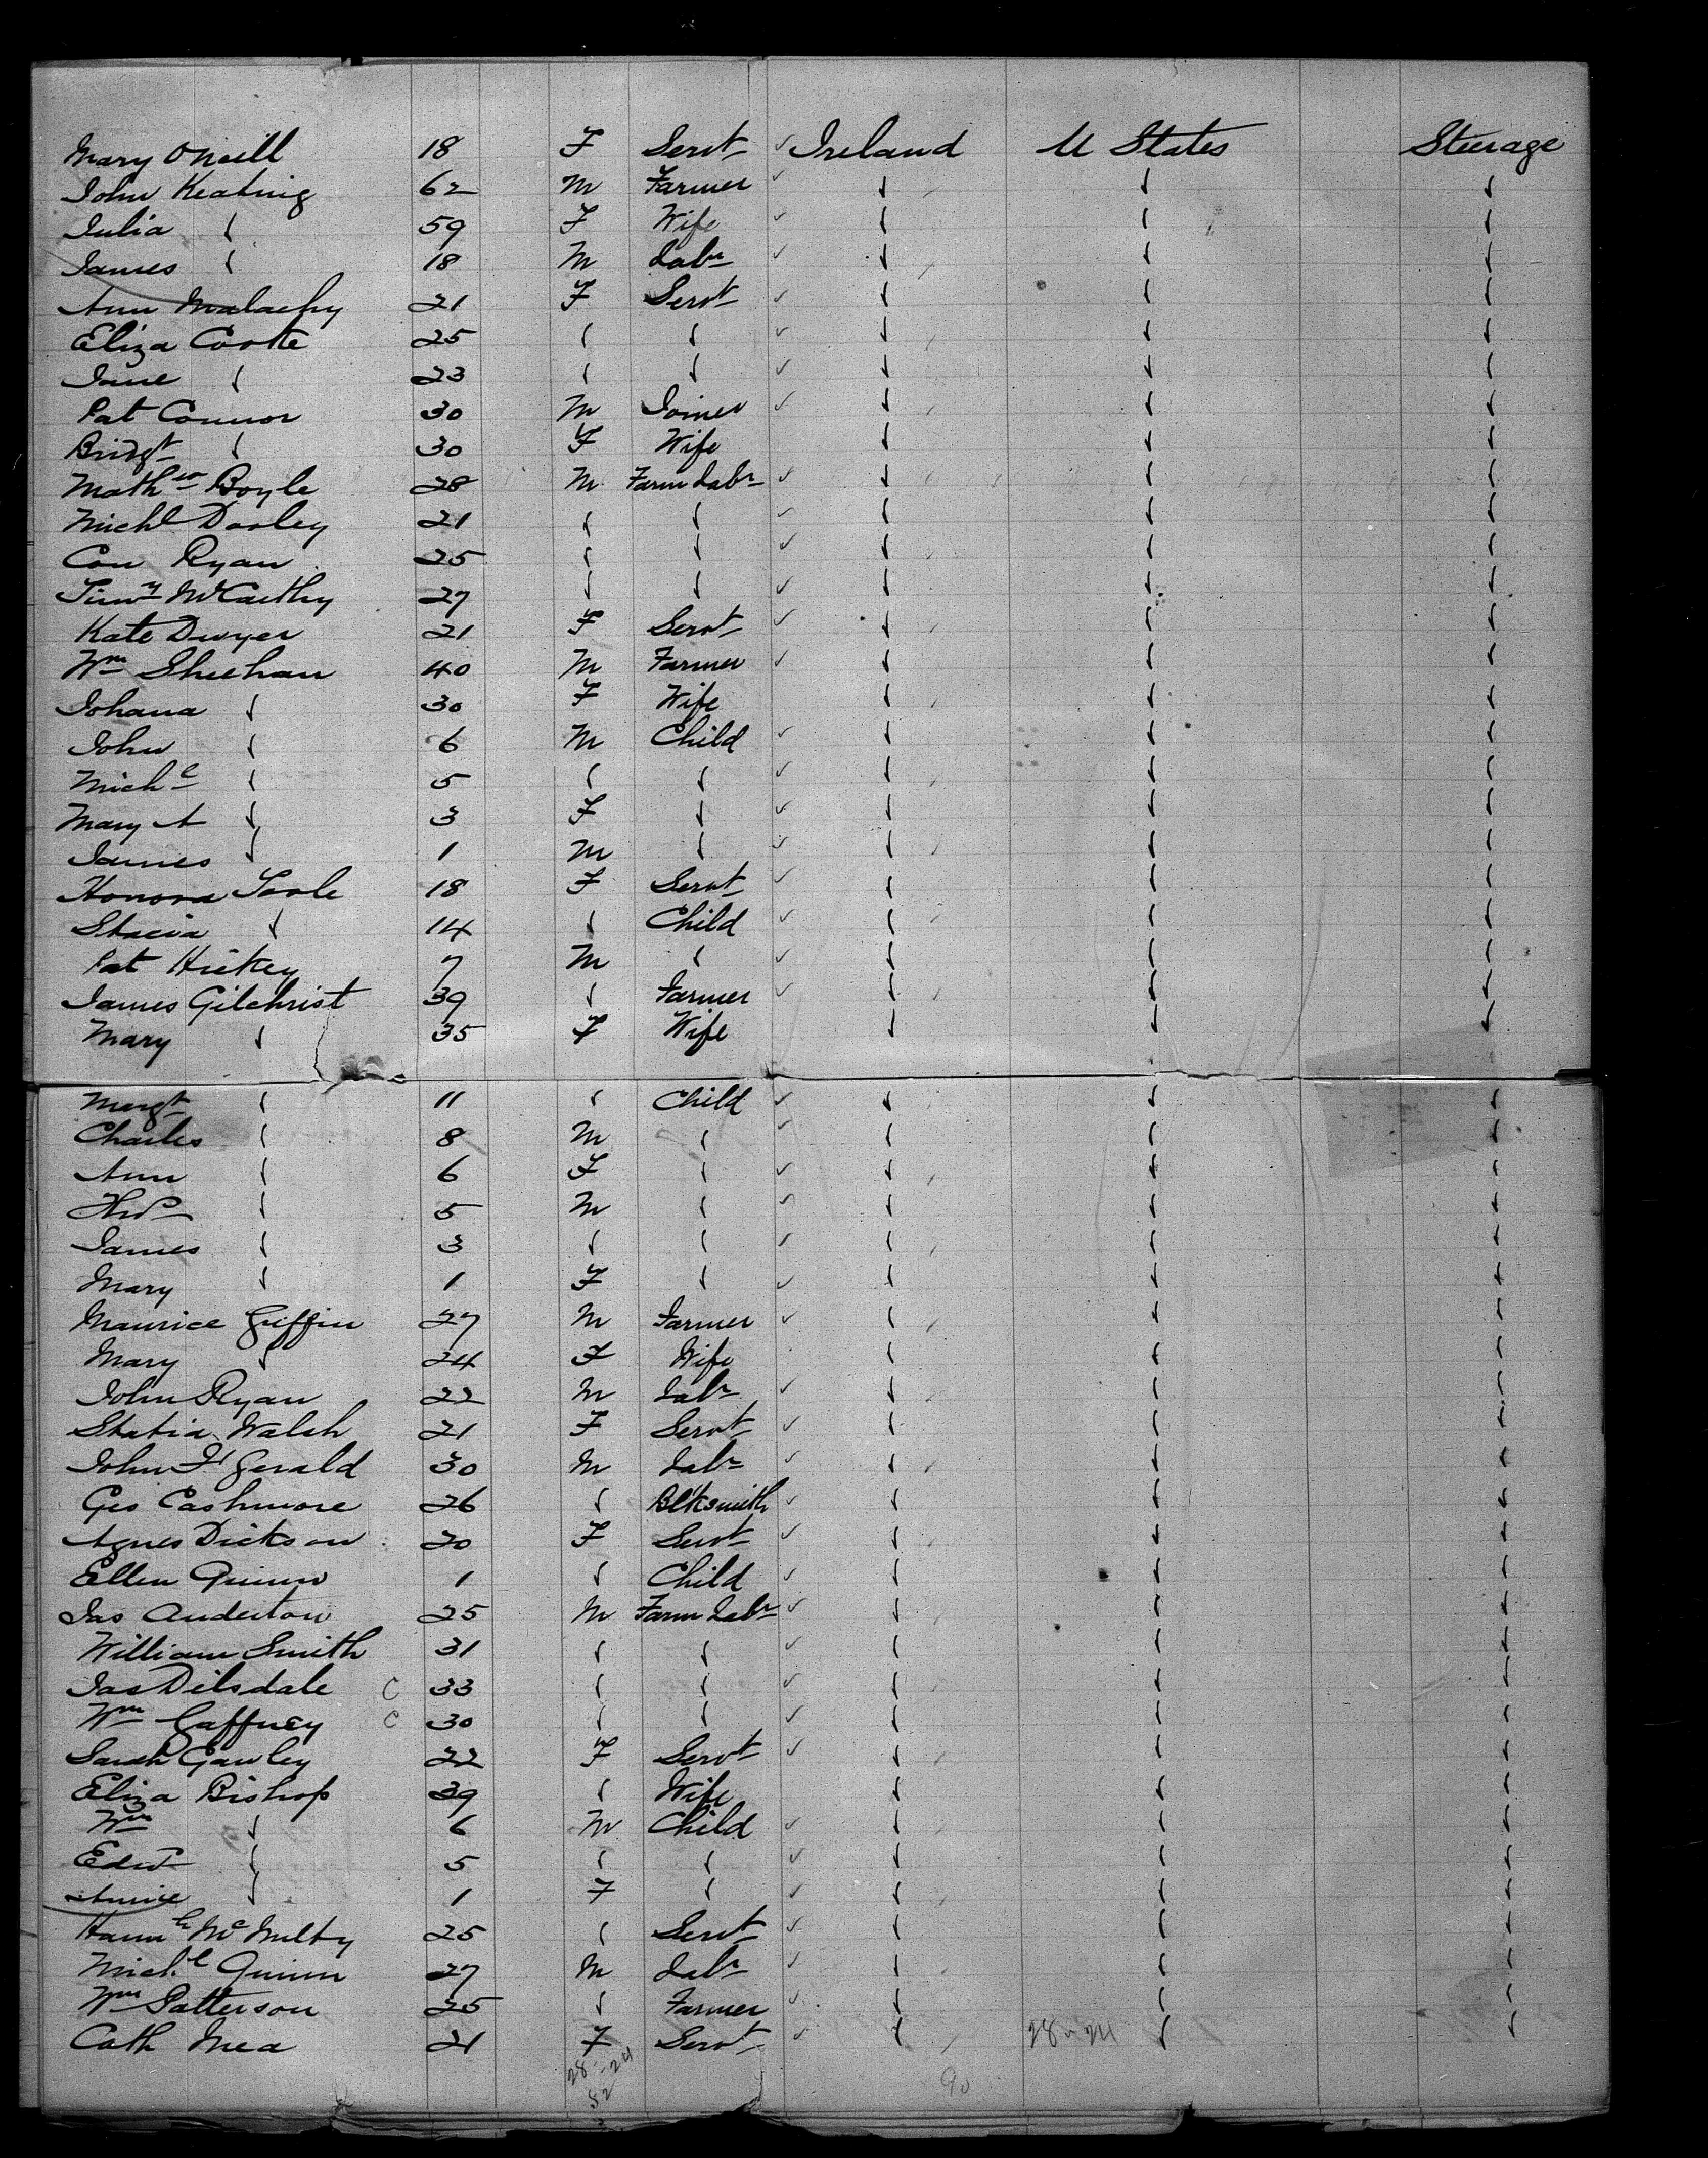 Mary O'Neill 18 F Servt ✓ Ireland U States Steerage
John Keating 62 M Farmer ✓ " " "
Julia " 59 F Wife ✓ " " "
James " 18 M Labr ✓ " " "
Ann Malachy 21 F Servt ✓ " " "
Eliza Cooke 25 " " ✓ " " "
Jane " 23 " " ✓ " " "
Pat Connor 30 M Joiner ✓ " " "
Bridgt " 30 F Wife " " "
Mathew Boyle 28 M Farm Labr ✓ " " "
Michl Dooley 21 " " ✓ " " "
Con Ryan 25 " " ✓ " " "
Timy McCarthy 27 " " ✓ " " "
Kate Dwyer 21 F Servt ✓ " " "
Wm Sheehan 40 M Farmer ✓ " " "
Johana " 30 F Wife " " "
John " 6 M Child ✓ " " "
Michl " 5 " " ✓ " " "
Mary A " 3 F " ✓ " " "
James " 1 M " ✓ " " "
Honora Toole 18 F Servt ✓ " " "
Stacia " 14 " Child ✓ " " "
Pat Hickey 7 M " ✓ " " "
James Gilchrist 39 " Farmer ✓ " " "
Mary " 35 F Wife " " "
Margt " 11 " Child ✓ " " "
Charles " 8 M " ✓ " " "
Ann " 6 F " ✓ " " "
" 5 M " ✓ " " "
James " 3 " " ✓ " " "
Mary " 1 F " ✓ " " "
Maurice Griffin 27 M Farmer ✓ " " "
Mary " 24 F Wife " " "
John Ryan 22 M Labr ✓ " " "
Statia Walsh 21 F Servt ✓ " " "
John Ftgerald 30 M Labr ✓ " " "
Geo Cashmore 26 " Blksmith ✓ " " "
Agnes Dickson 20 F Servt ✓ " " "
Ellen Quinn 1 " Child ✓ " " "
Jas Anderton 25 M Farm Labr ✓ " " "
William Smith 31 " " ✓ " " "
Jas Dilsdale C 33 " " ✓ " " "
Wm Gaffney C 30 " " ✓ " " "
Sarah Gawley 22 F Servt ✓ " " "
Eliza Bishop 39 " Wife " " "
Wm " 6 M Child ✓ " " "
Edwd " 5 " " ✓ " " "
Annie " 1 F " ✓ " " "
Hannh McNulty 25 " Servt ✓ " " "
Michl Quinn 27 M Labr ✓ " " "
Wm Patterson 25 " Farmer ✓ " " "
Cath Mea 21 F Servt ✓ " 28-24 " "
28-24 90
52